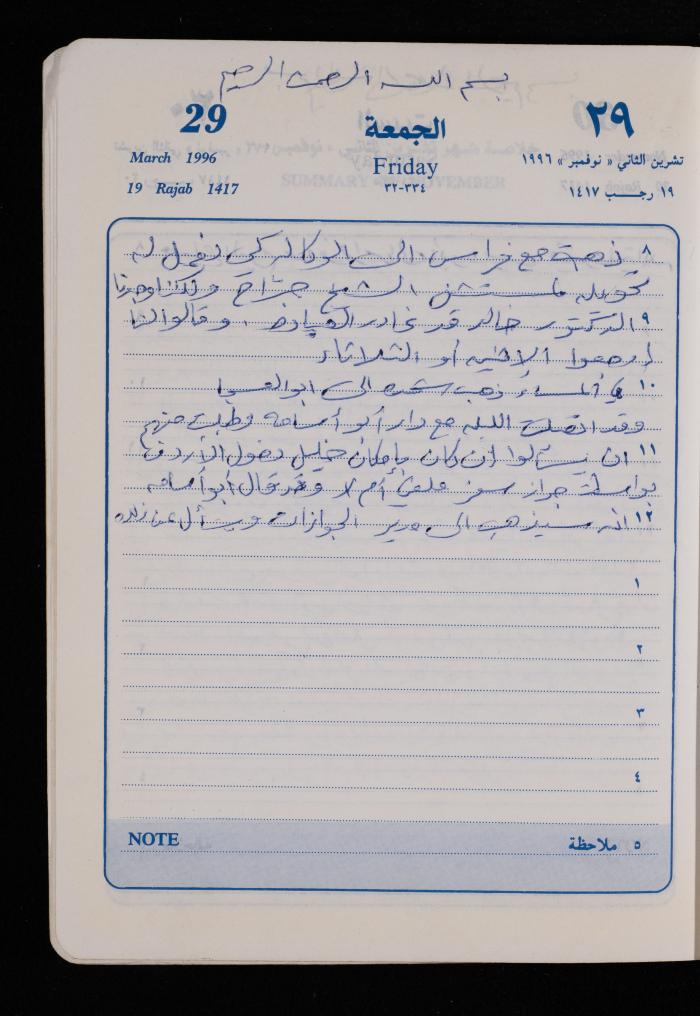 بسم الله الرحمن الرحيم
29 الجمعة ٢٩
March 1996 Friday تشرين الثاني « نوفمبر » ١٩٩٦
19 Rajab 1417 ٣٣٤-٣٢ ١٩ رجب ١٤١٧
٨ ذهبت مع فراس الى الوكالة كي نعمل له
تحويله لمستشفى الشيخ جراح ولكننا وجدنا
٩ الدكتور خالد قد غادر العيادة ، وقالوا لنا
ارجعوا الاثنين أو الثلاثاء
١٠ في المساء ذهبت الى ابو العبد
وقد اتصلت الليلة مع دار أبو أسامه وطلبت منهم
١١ ان يسألوا ان كان بإمكان خليل دخول الأردن
بواسطة جواز سفر أم لا وقد قال أبو أسامه
١٢ انه سيذهب الى مدير الجوازات ويسأل عن ذلك
١
٢
٣
٤
NOTE ٥ ملاحظة